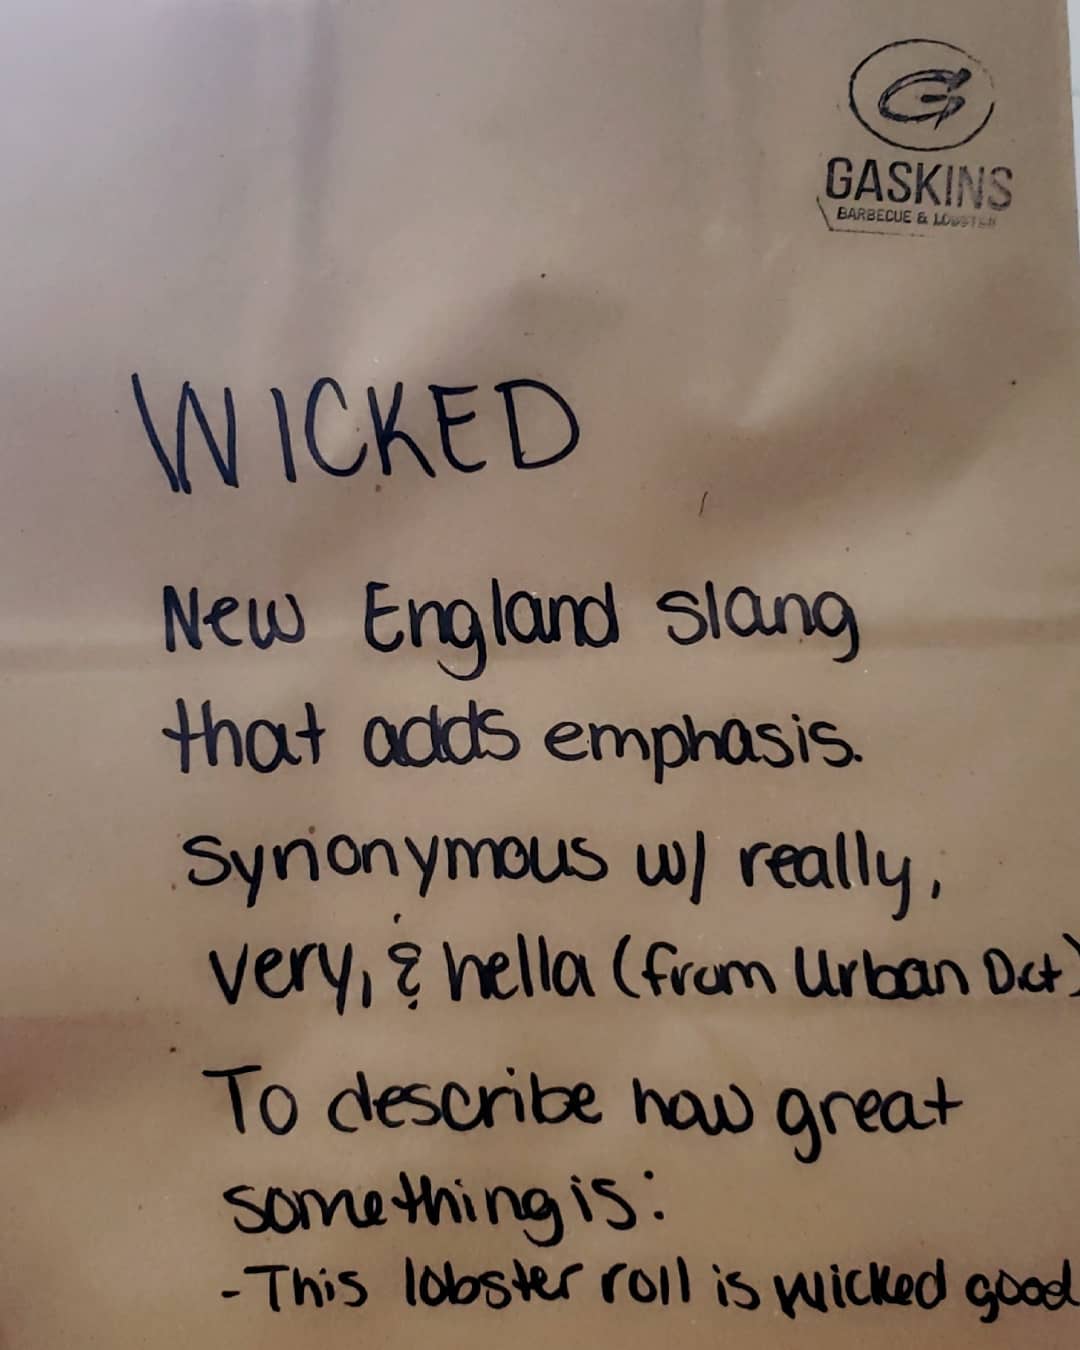 G
GASKINS
BARBECUE & LOBSTER
WICKED
New England slang
that adds emphasis.
Synonymous w/ really,
very, & hella (from Urban Dict)
To describe how great
something is:
-This lobster roll is wicked good